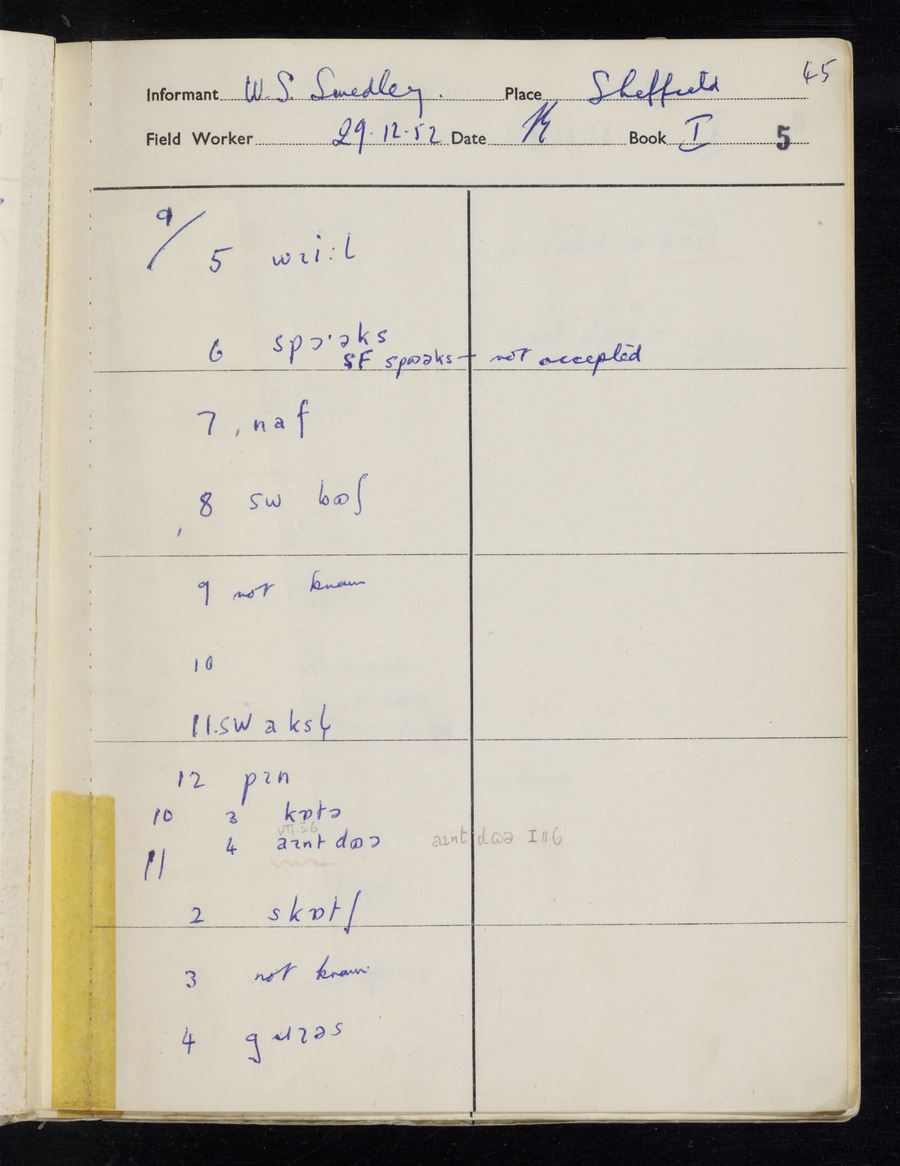 45
Informant W. S. Smedley. Place Sheffield
Field Worker 29·12·52 Date Book I 5
9/
5 wɹi:l
6 spɔ·əks
SF spɷəks — not accepted
7 naf
8 SW bɷʃ
9 not known
10
11. SW aksɫ
12 pɪn
10 3 kɒtə
VII.5.6
4 aɪnt dɷə aɪnt dɷə I 11 6
11
2 skɒtʃ
3 not known
4